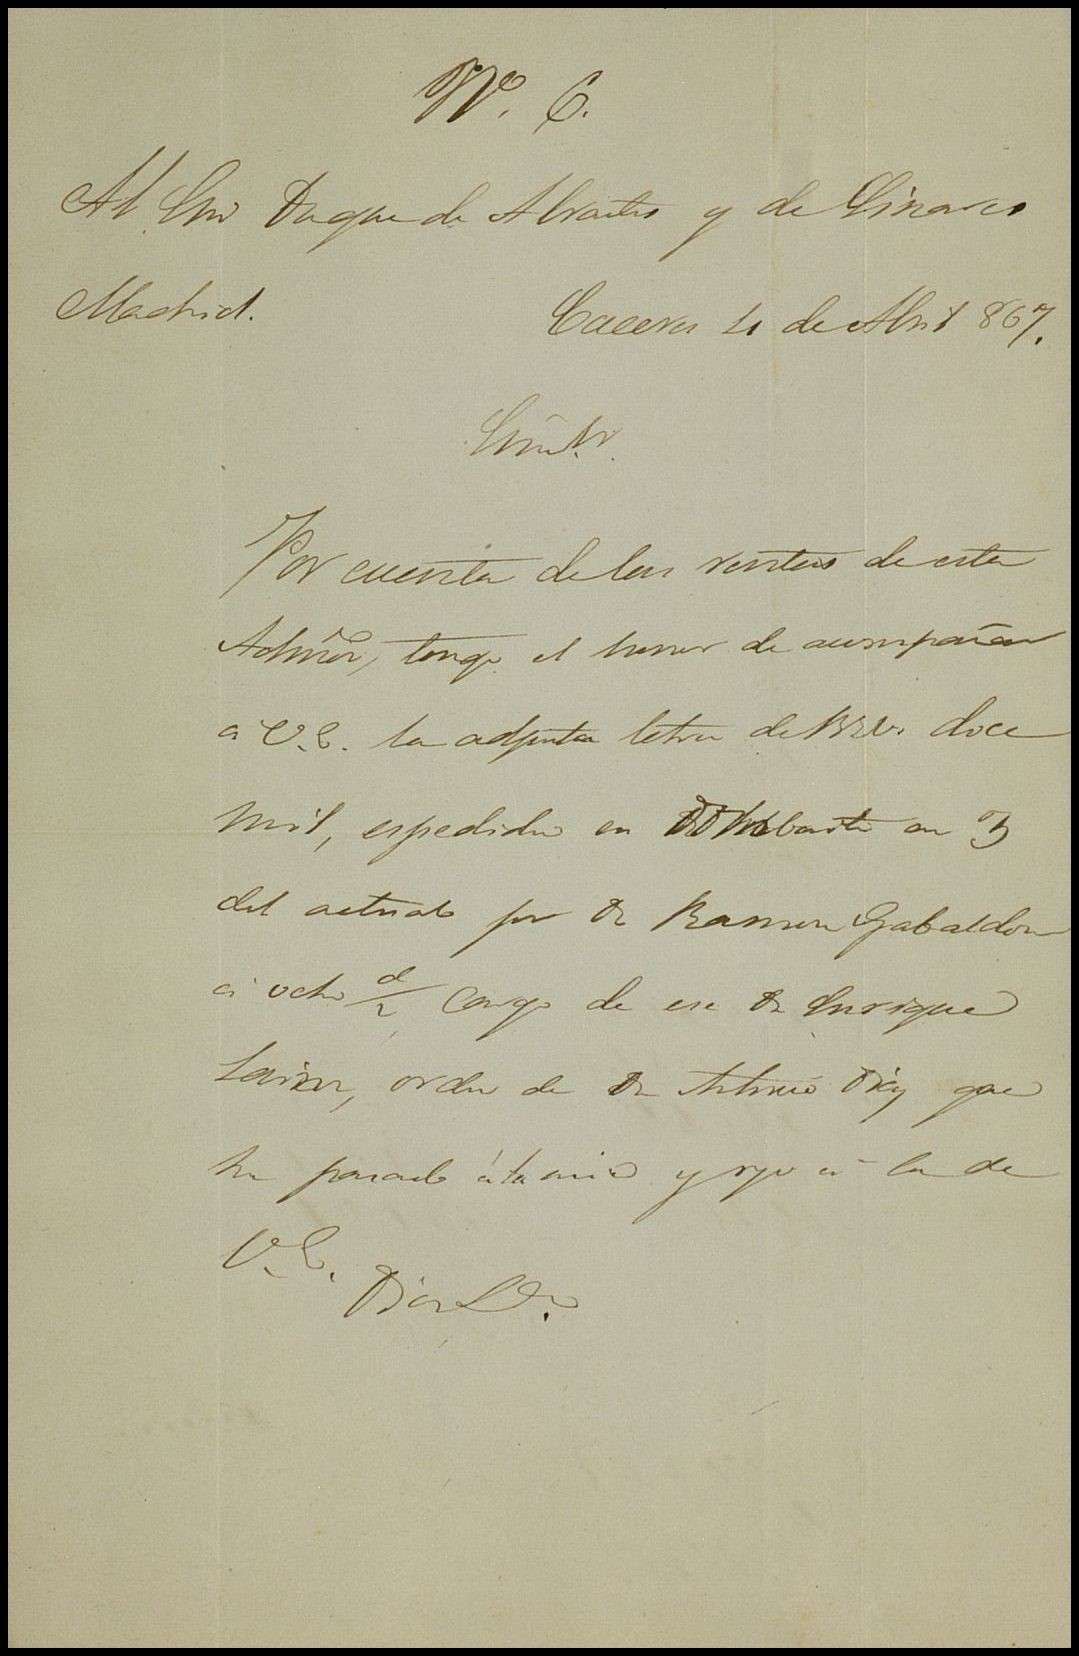 Nº. 6.
Al Exmo Duque de Abrantes y de Linares
Madrid. Caceres 11 de Abril 867.
Exmo Sr.
Por cuenta de las rentas de esta
Admon, tengo el honor de acompañar
a V.E. la adjunta letra de Rs Vn doce
mil, espedida en en 5
del actual por Dn Ramon Gabaldon
a ocho d/v cargo de ese Dn Enrique
orden de Dn Antonio Diaz que
ha pasado á la mia y yo á la de
V.E.
Dios